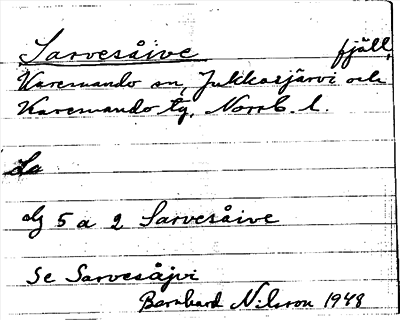 Sarvesåive fjäll,
Karesuando sn, Jukkasjärvi och
Karesuando tg, Norrb. l.
La
dg 5 a 2 Sarvesåive
Se Sarvesåjvi
Barnhard Nilsson 1948